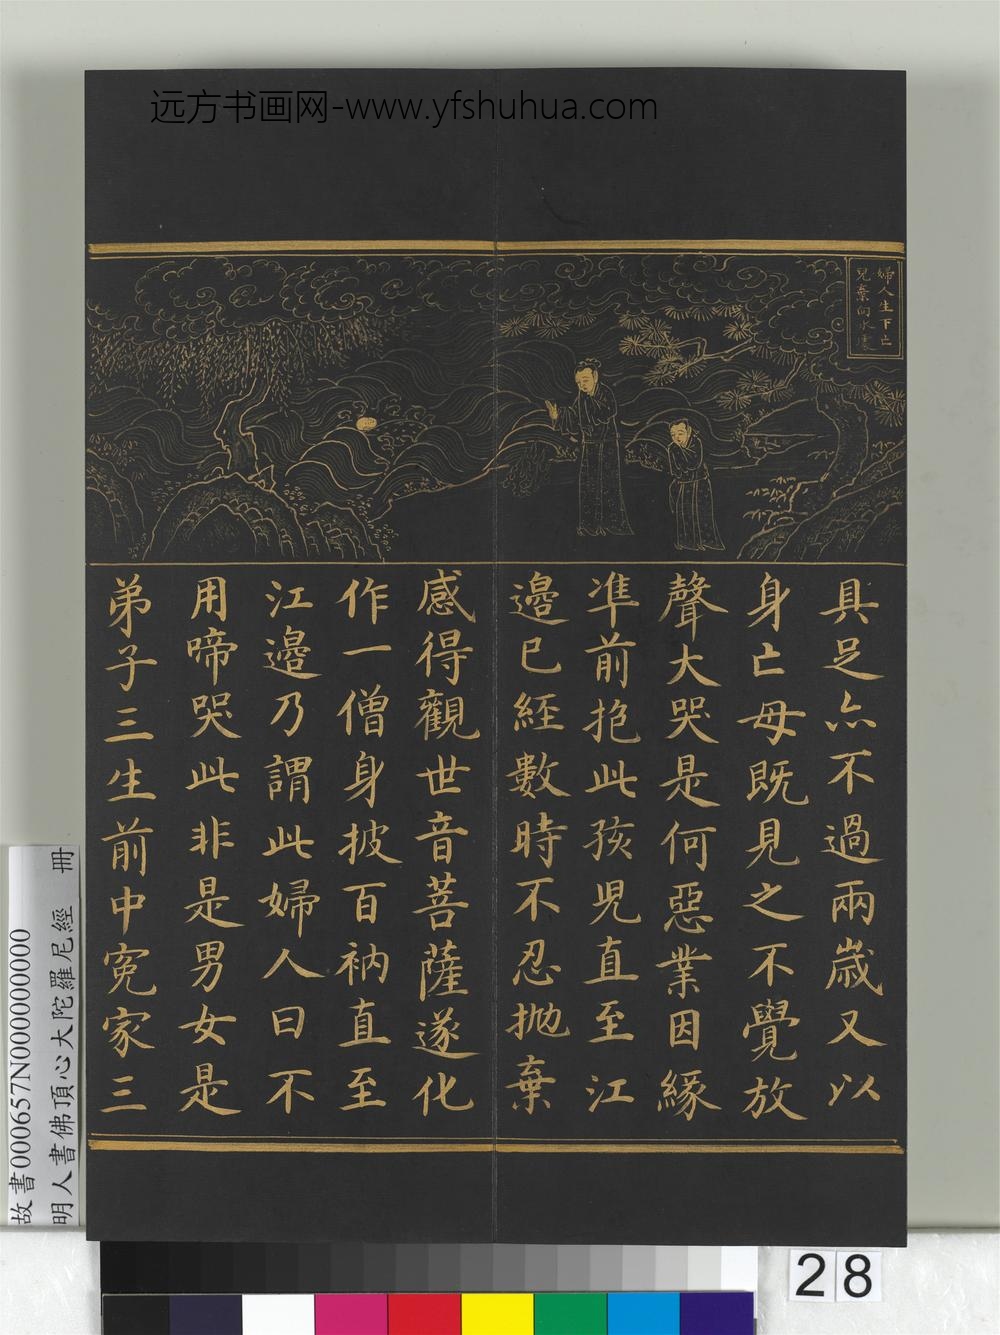 远方书画网-www.yfshuhua.com
婦人生下亡
兒棄向水處
具足亦不過兩歲又以
身亡母既見之不覺放
聲大哭是何惡業因緣
準前抱此孩児直至江
邊已經數時不忍拋棄
感得觀世音菩薩遂化
作一僧身披百衲直至
江邊乃謂此婦人曰不
用啼哭此非是男女是
弟子三生前中寃家三
故書000657N000000000
明人書佛頂心大陀羅尼經 冊
28